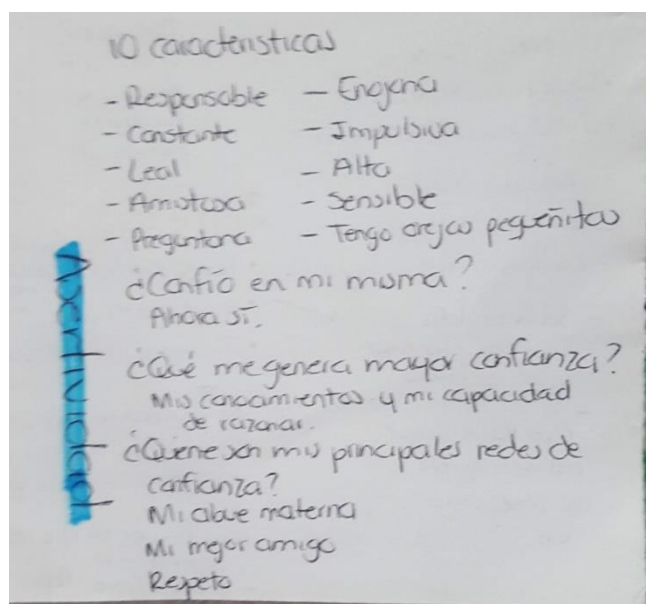 10 características
- Responsable - Enojona
- Constante - Impulsiva
- Leal - Alta
- Amotosa - Sensible
- Preguntona - Tengo orejas pequeñitas
Asertividad
¿Confío en mi misma?
Ahora sí.
¿Qué me genera mayor confianza?
Mis conocimientos y mi capacidad
de razonar.
¿Quiene son mis principales redes de
confianza?
Mi abue materna
Mi mejor amigo
Respeto